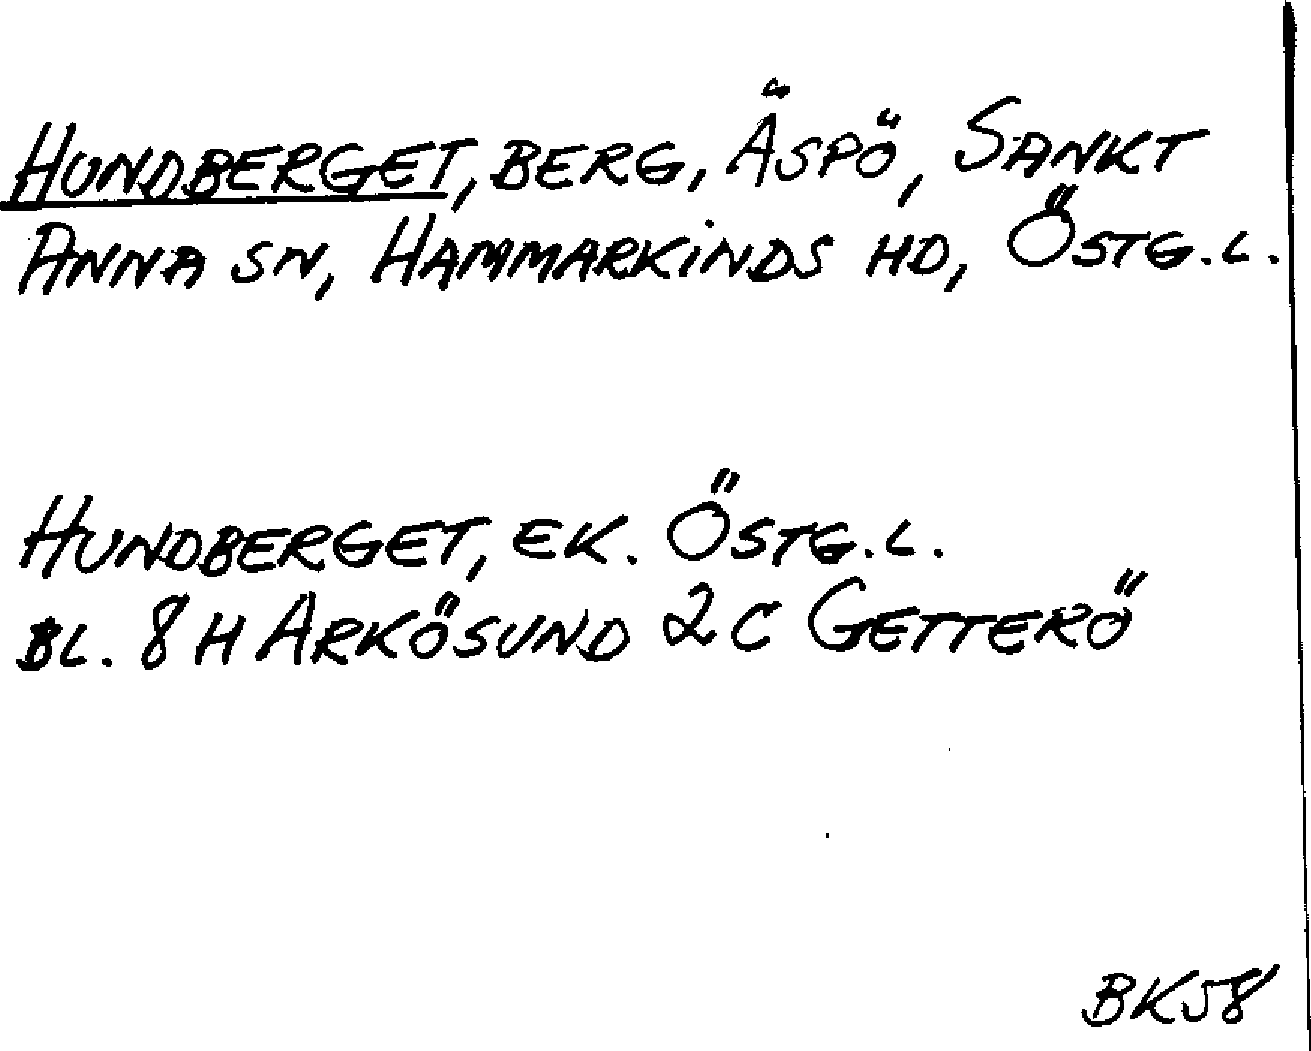 HUNDBERGET, BERG, ÄSPÖ, SANKT
ANNA SN, HAMMARKINDS HD, ÖSTG.L.
HUNDBERGET, EK. ÖSTG.L.
BL. 8 H ARKÖSUND 2 C GETTERÖ
BK58